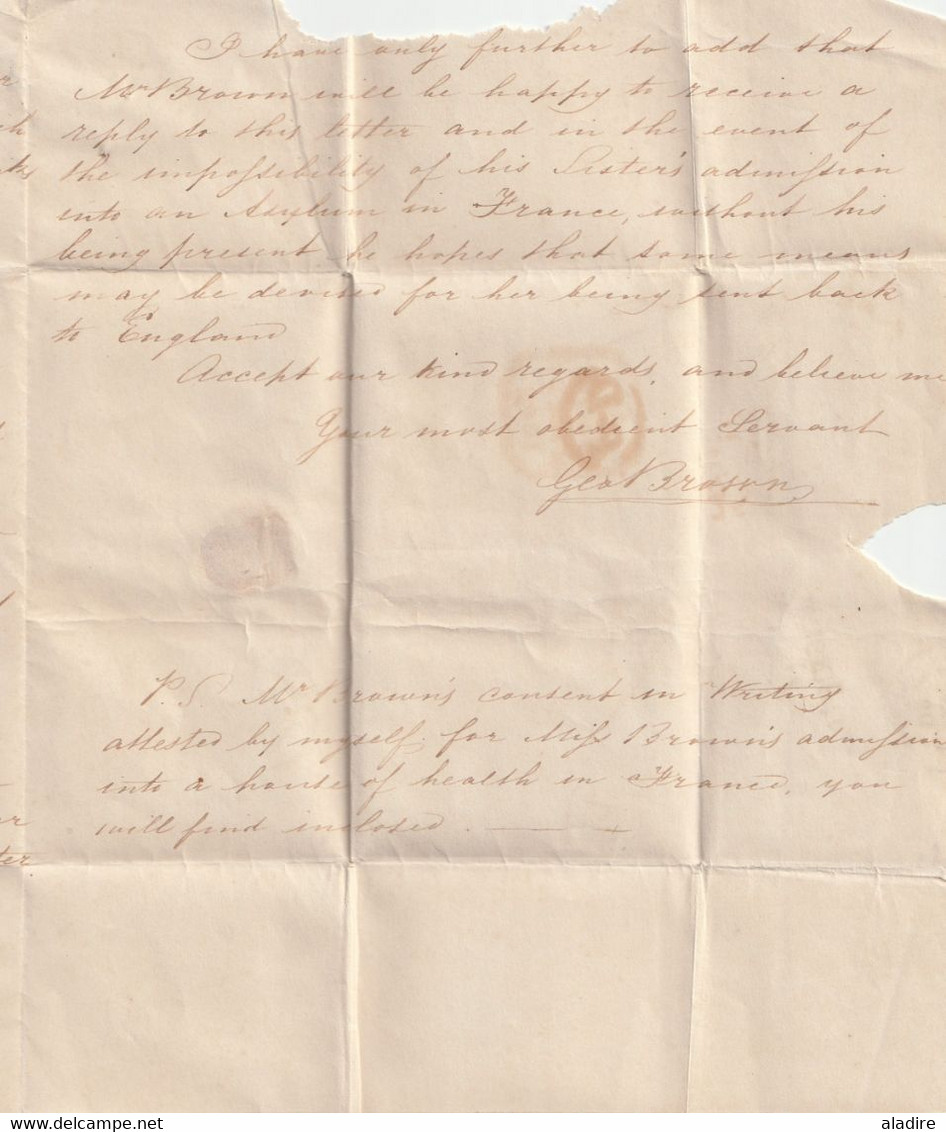 I have only further to add that
Mr Brown will be happy to receive a
reply to this letter and in the event of
the impossibility of his Sister's admission
into an Asylum in France, without his
being present he hopes that some means
may be devised for her being sent back
to England
Accept our kind regards, and believe me
Your most obedient Servant
Geo Brown
P.S. Mr Brown's consent in Writing
attested by myself for Miss Brown's admission
into a house of health in France, you
will find inclosed.
ter
delcampe.net
aladire